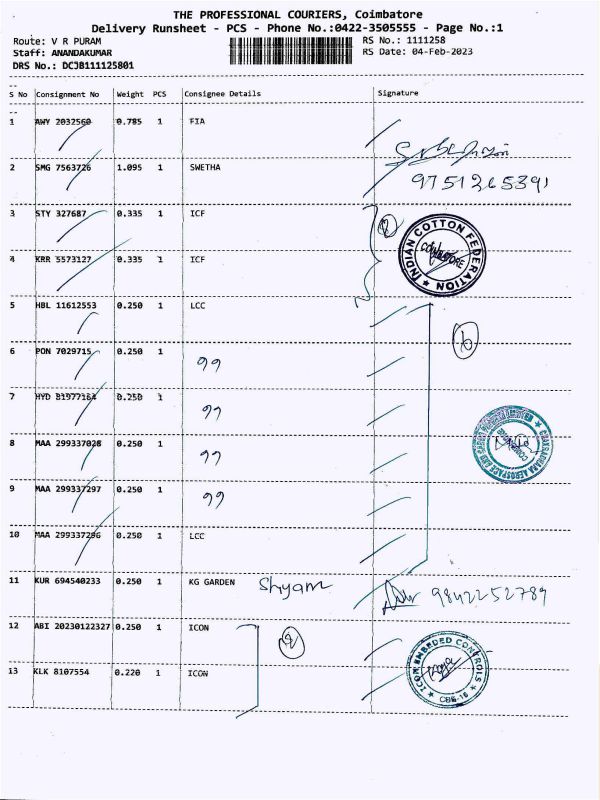 THE PROFESSIONAL COURIERS, Coimbatore
Delivery Runsheet - PCS - Phone No.:0422-3505555 - Page No.:1
Route: V R PURAM
Staff: ANANDAKUMAR
DRS No.: DCJB111125801
RS No.: 1111258
RS Date: 04-Feb-2023
S No Consignment No Weight PCS Consignee Details Signature
1 AWY 2032560 0.785 1 FIA
2 SMG 7563726 1.095 1 SWETHA
9751265391
3 STY 327687 0.335 1 ICF
2
INDIAN COTTON FEDERATION
COIMBATORE
4 KRR 5573127 0.335 1 ICF
5 HBL 11612553 0.250 1 LCC
6 PON 7029715 0.250 1 ,,
6
7 HYD 81977164 0.250 1 ,,
8 MAA 299337028 0.250 1 ,,
9 MAA 299337297 0.250 1 ,,
10 MAA 299337296 0.250 1 LCC
11 KUR 694540233 0.250 1 KG GARDEN Shyam 9842252789
12 ABI 20230122327 0.250 1 ICON
2
ICON EMBEDED CONTROLS
CBE-16
13 KLK 8107554 0.220 1 ICON